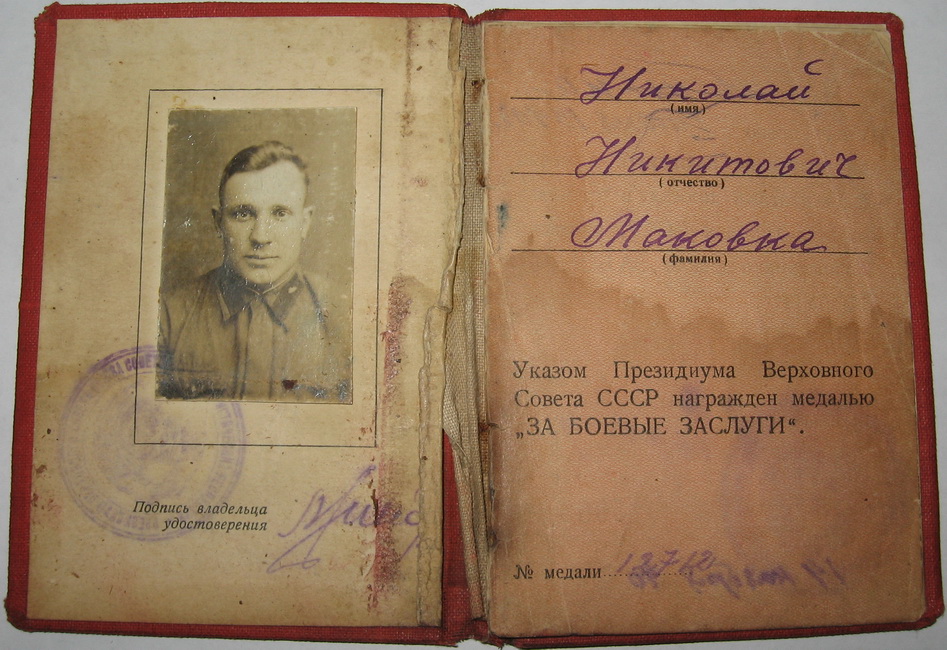 Подпись владельца
удостоверения
Николай
(имя)
Никитович
(отчество)
Маковка
(фамилия)
Указом Президиума Верховного
Совета СССР награжден медалью
„ЗА БОЕВЫЕ ЗАСЛУГИ“.
№ медали